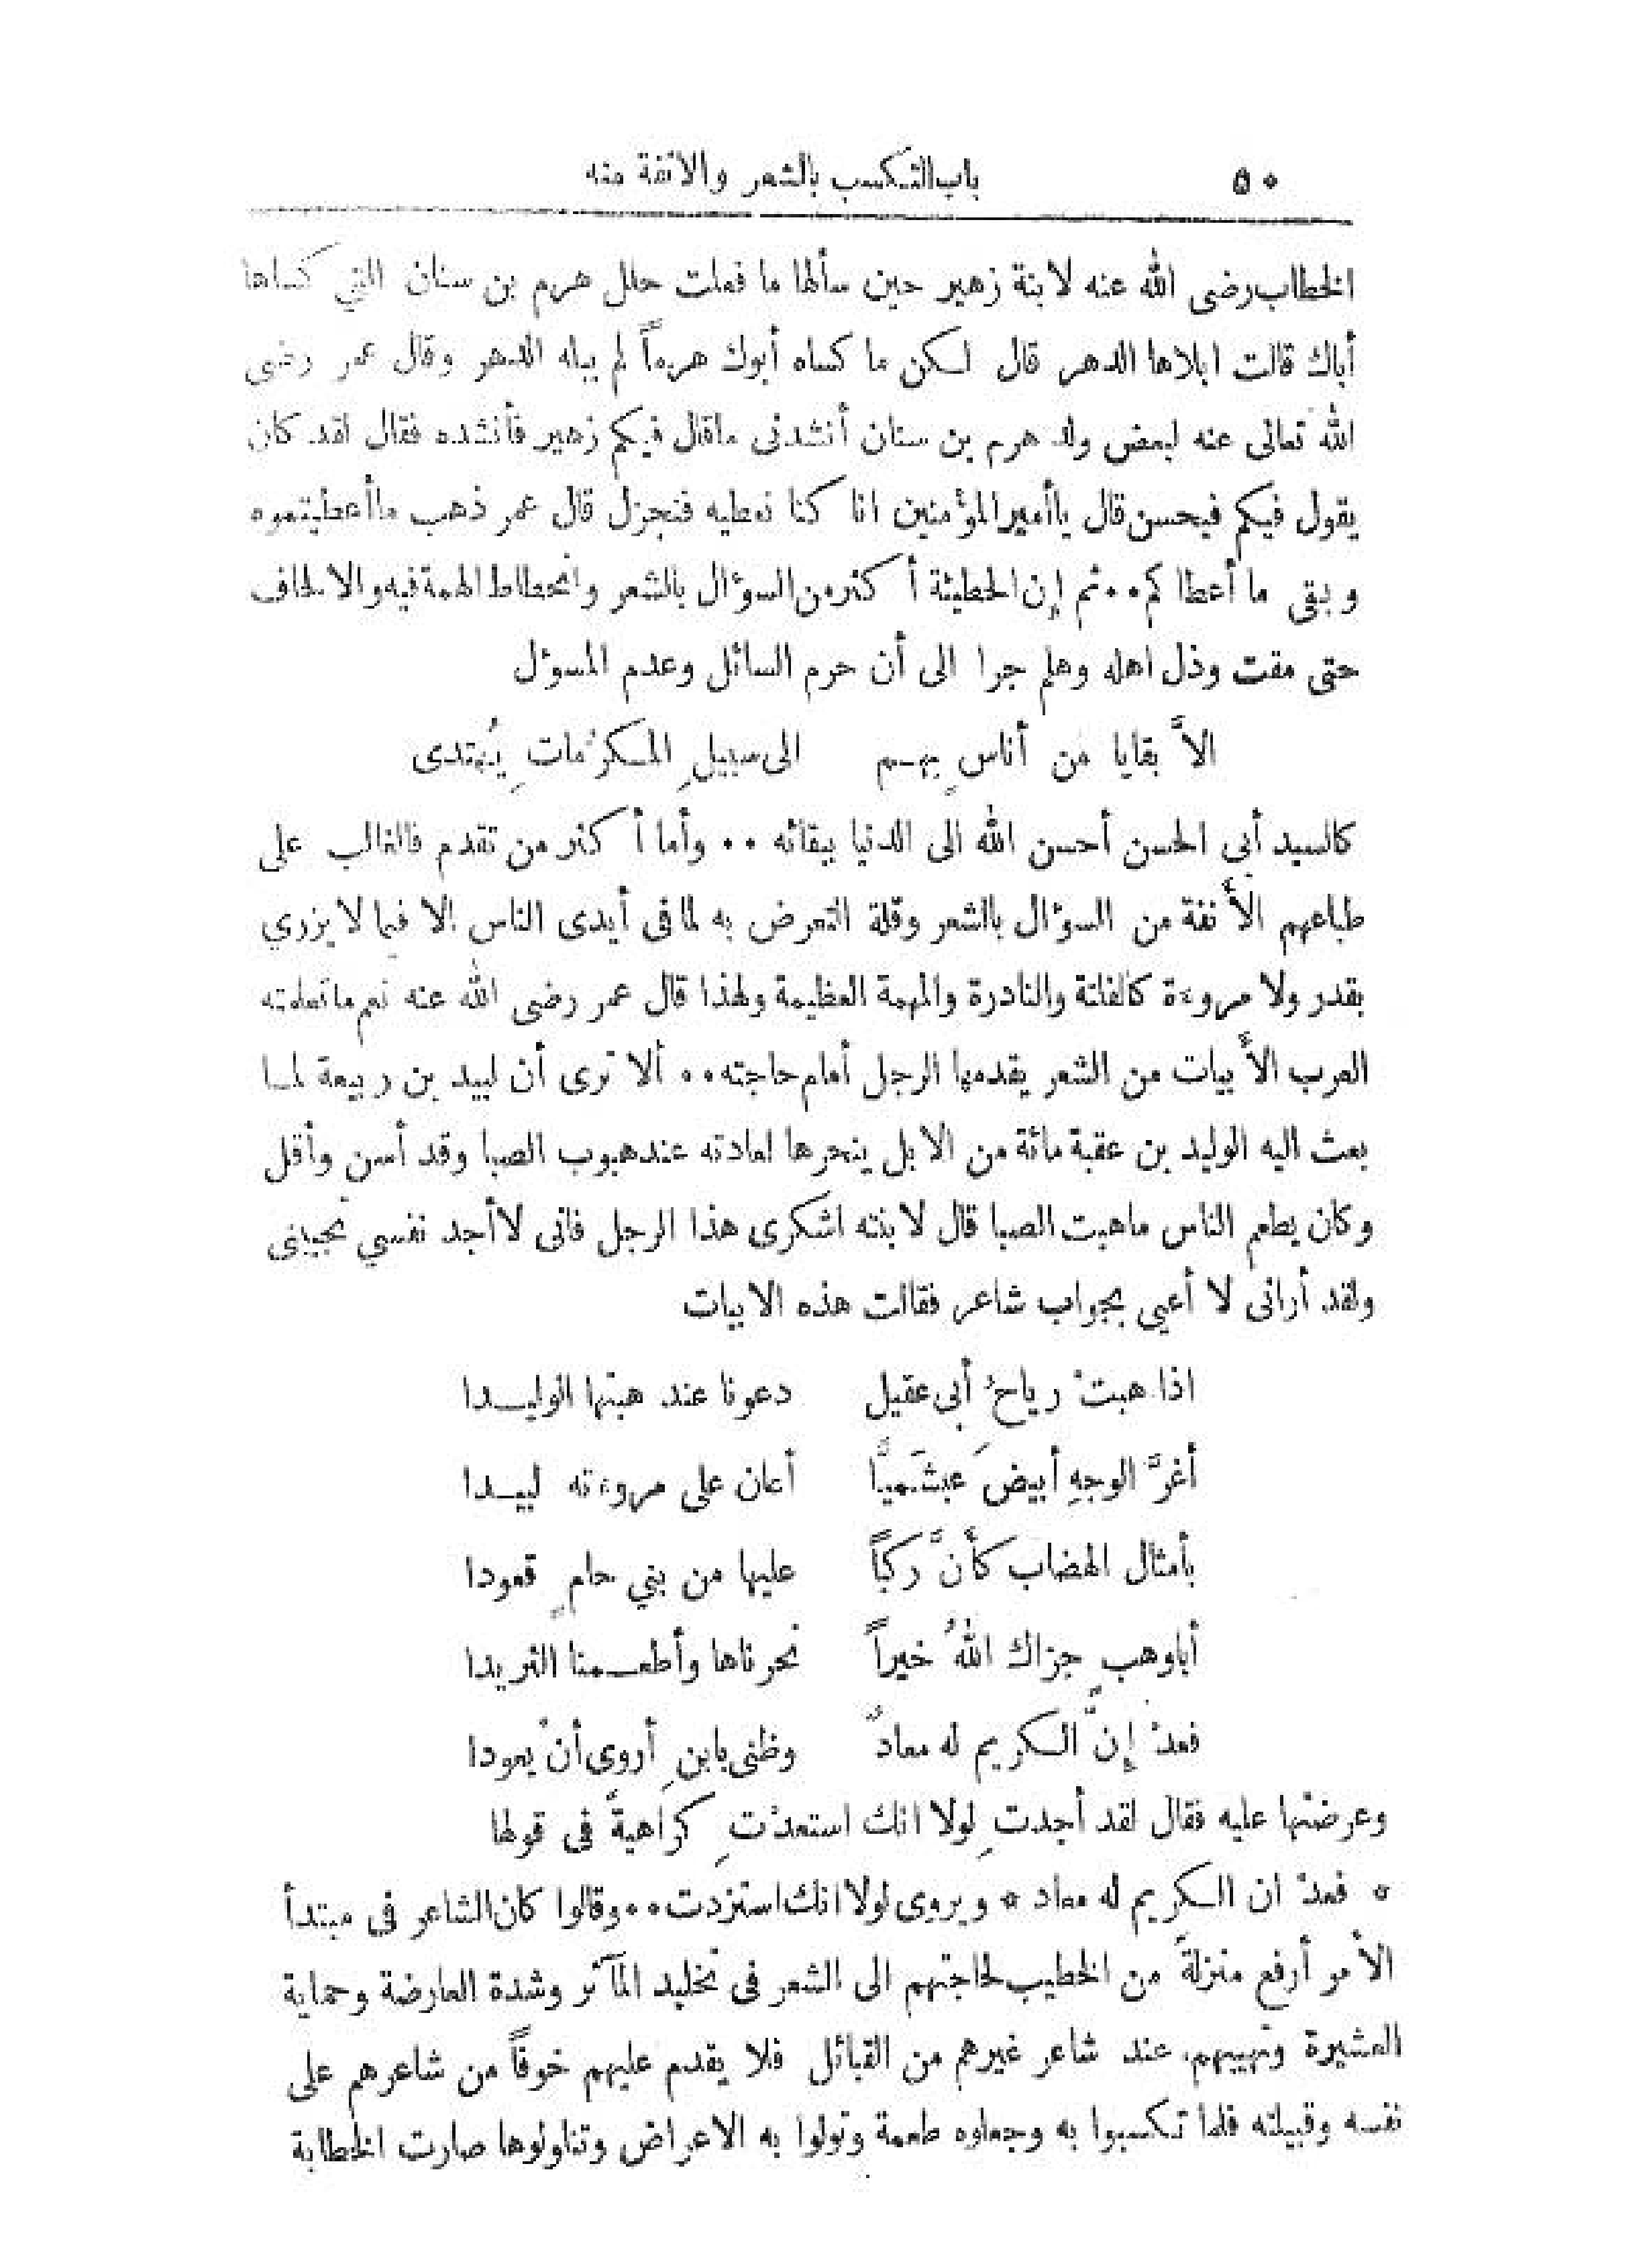 ٥٠ باب التكسب بالشعر والانفة منه
الخطاب رضى الله عنه لابنة زهير حين سألها ما فعلت حلل هرم بن سنان التي كساها
أباك قالت ابلاها الدهر قال لكن ما كساه أبوك هرماً لم يبله الدهر وقال عمر رضى
الله تعالى عنه لبعض ولد هرم بن سنان أنشدنى ماقال فيكم زهير فأنشده فقال لقد كان
يقول فيكم فيحسن قال ياأمير المؤمنين انا كنا نعطيه فنجزل قال عمر ذهب ماأعطيتموه
وبقى ما أعطاكم ٠٠ ثم إن الحطيئة أكثر من السؤال بالشعر وانحطاط الهمة فيه والالحاف
حتى مقت وذل اهله وهلم جرا الى أن حرم السائل وعدم المسؤل
الاَّ بقايا من أناسٍ بهم الى سبيلِ المكرُماتِ يُهتدى
كالسيد أبى الحسن أحسن الله الى الدنيا ببقائه ٠٠ وأما أكثر من تقدم فالغالب على
طباعهم الأنفة من السؤال بالشعر وقلة التعرض به لما فى أيدى الناس إلا فيما لا يزري
بقدر ولا مروءة كالفلتة والنادرة والمهمة العظيمة ولهذا قال عمر رضى الله عنه نعم ماتعلمته
العرب الأبيات من الشعر يقدمها الرجل أمام حاجته ٠٠ ألا ترى أن لبيد بن ربيعة لما
بعث اليه الوليد بن عقبة مائة من الابل ينحرها لعادته عند هبوب الصبا وقد أسن وأقل
وكان يطعم الناس ماهبت الصبا قال لابنته اشكرى هذا الرجل فانى لاأجد نفسي تجيبنى
ولقد أرانى لا أعيى بجواب شاعر فقالت هذه الابيات
اذا هبتْ رياحُ أبى عقيل دعونا عند هبتها الوليدا
أغرَّ الوجهِ أبيضَ عبشَمياًّ أعان على مروءته لبيدا
بأمثال الهضاب كأنَّ ركباً عليها من بني حامٍ قعودا
أباوهبٍ جزاك اللهُ خيراً نحرناها وأطعمنا الثريدا
فعدْ إنَّ الكريم له معادٌ وظنى يابنِ أروى أنْ يعودا
وعرضتها عليه فقال لقد أجدتِ لولا انك استعدْتِ كراهيةً فى قولها
* فعدْ ان الكريم له معاد * ويروى لولا انك استزدت ٠٠ وقالوا كان الشاعر فى مبتدأ
الأمر أرفع منزلةً من الخطيب لحاجتهم الى الشعر فى تخليد المآثر وشدة العارضة وحماية
العشيرة وتهيبهم عند شاعر غيرهم من القبائل فلا يقدم عليهم خوفاً من شاعرهم على
نفسه وقبيلته فلما تكسبوا به وجعلوه طعمة وتولوا به الاعراض وتناولوها صارت الخطابة